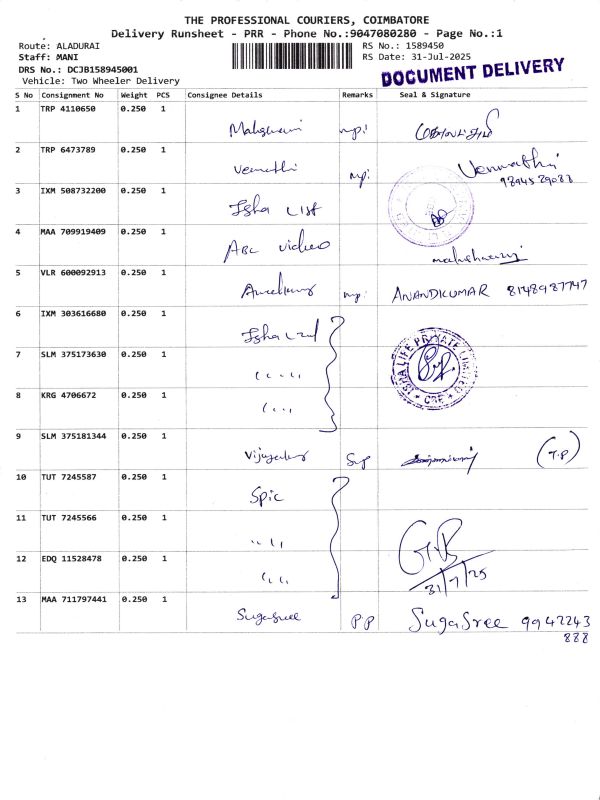 THE PROFESSIONAL COURIERS, COIMBATORE
Delivery Runsheet - PRR - Phone No.:9047080280 - Page No.:1
Route: ALADURAI
RS No.: 1589450
Staff: MANI
RS Date: 31-Jul-2025
DRS No.: DCJB158945001
Vehicle: Two Wheeler Delivery
DOCUMENT DELIVERY
S No Consignment No Weight PCS Consignee Details Remarks Seal & Signature
1 TRP 4110650 0.250 1
2 TRP 6473789 0.250 1
3 IXM 508732200 0.250 1 Isha
4 MAA 709919409 0.250 1 ABC video
5 VLR 600092913 0.250 1 ANANDKUMAR 8148987747
6 IXM 303616680 0.250 1 Isha
7 SLM 375173630 0.250 1 ISHA LIFE PRIVATE LIMITED CBE
8 KRG 4706672 0.250 1
9 SLM 375181344 0.250 1 (T.P)
10 TUT 7245587 0.250 1 Spic
11 TUT 7245566 0.250 1
12 EDQ 11528478 0.250 1 31/7/25
13 MAA 711797441 0.250 1 SugaSree P.P SugaSree 9942243
888